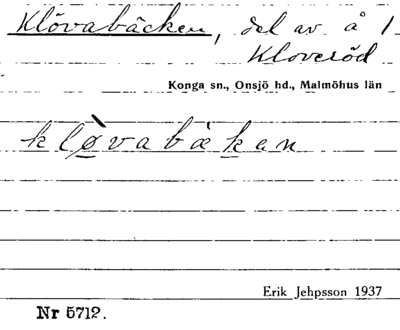 Klövabäcken, del av å /
Kloveröd
Konga sn., Onsjö hd., Malmöhus län
klø̀vabäken
Erik Jehpsson 1937
Nr 5712.